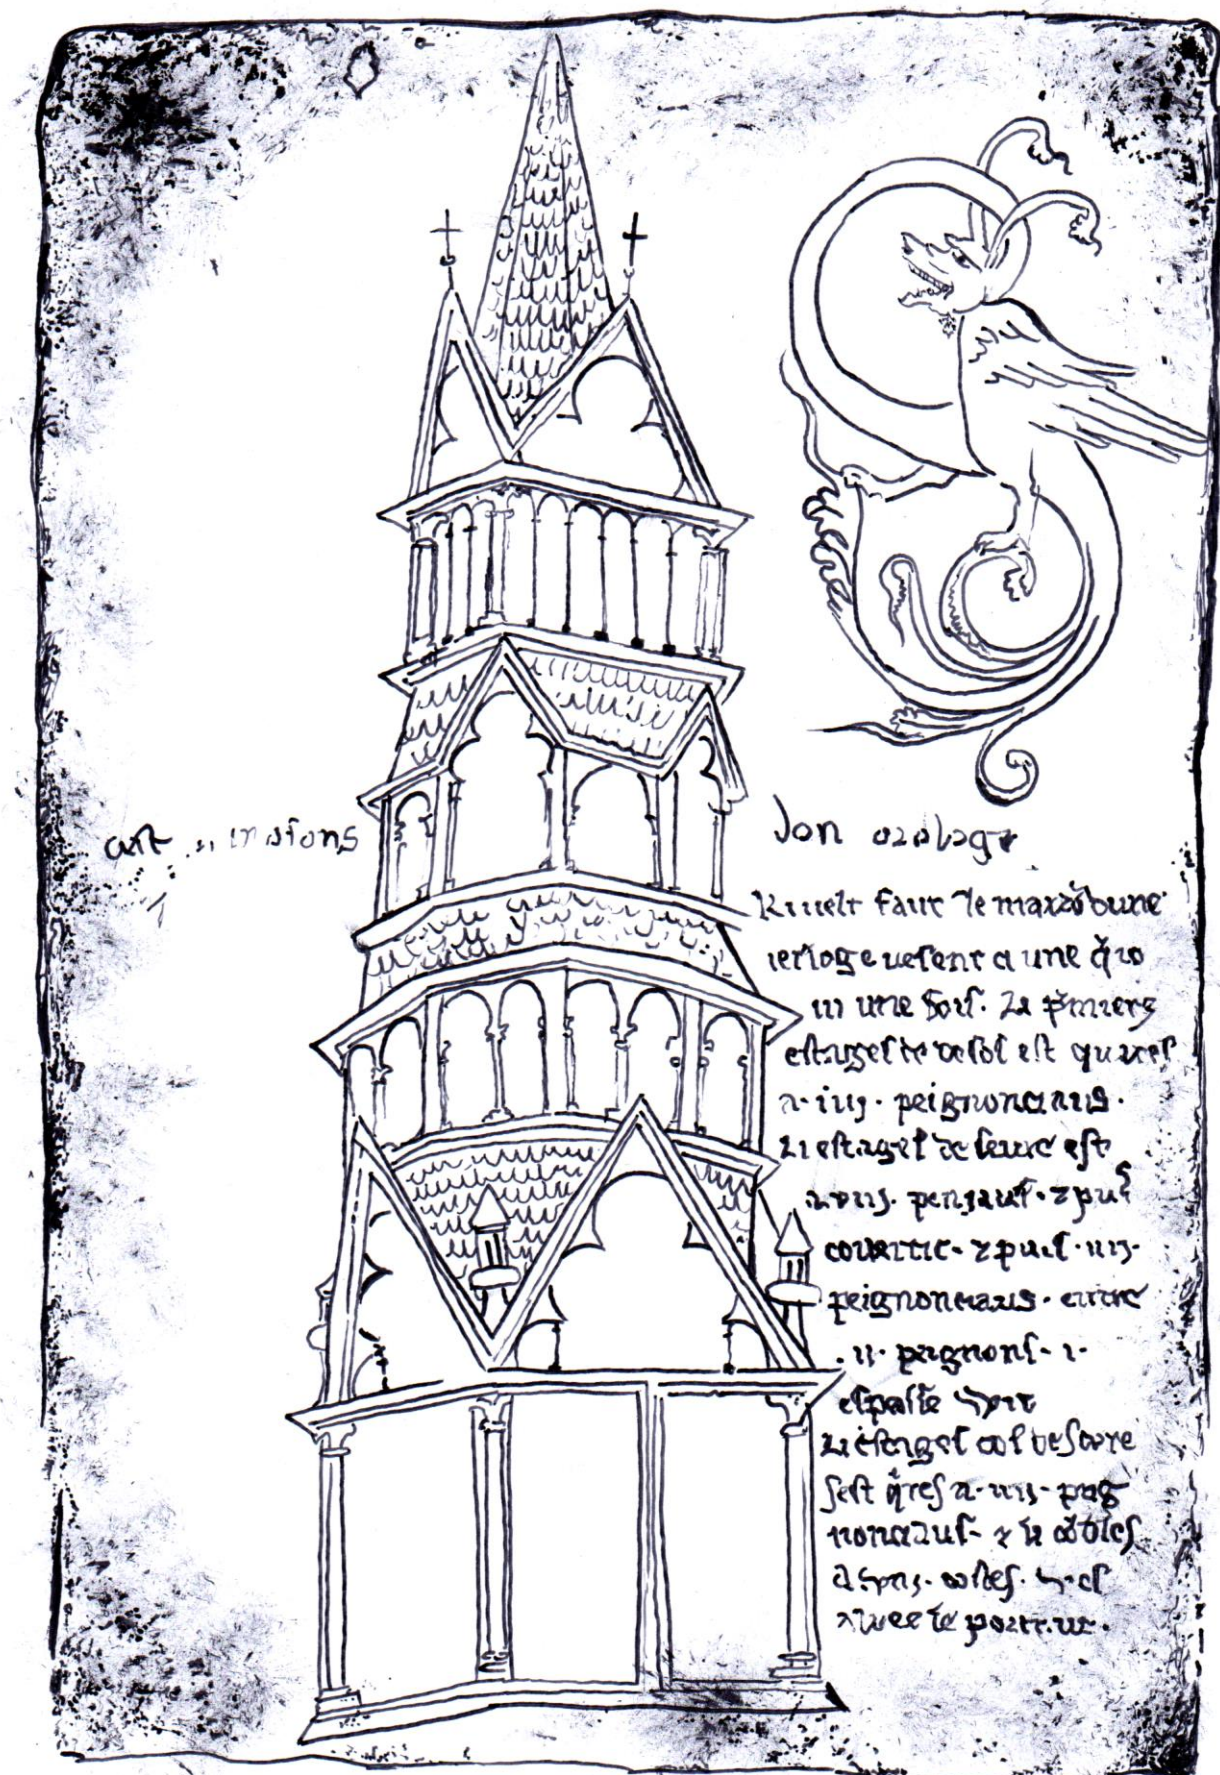 art maisons
don orologe
Ki velt faire le maizõ dune
ierloge vesent ci une q̃ io
vi une fois. Li p̃miers
estages de desos est quares
a · iiij · peignonciaus ·
Li estages de seure est
a viij · peniaus · ⁊ puis
covertic · ⁊ puis · iiij ·
peignonciaus · entre
· ij · peignons · i ·
espasse wit
Li estages tos deseure
sest q̃res a · iiij · peig
nonciaus · ⁊ li cōbles
a viij · costes ·
le portrait ·